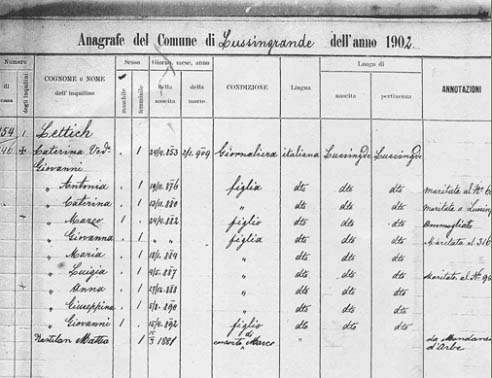 Anagrafe del Comune di Lussingrande dell'anno 1902.
Numero
di casa
degli inquilini
COGNOME e NOME
dell'inquilino
Sesso
maschile
femminile
Giorno, mese, anno
Della nascita
della morte
CONDIZIONE
Lingua
Luogo di
nascita
pertinenza
ANNOTAZIONI
254 1 Lettich
Caterina Ved. 1 853 909 Giornaliera italiana Lussingde Lussingde
Giovanni
„ Antonia 1 876 figlia dto dto dto maritata al No 6
„ Caterina 1 880 „ dto dto dto Maritata a Lussin
„ Marco 1 882 figlio dto dto dto Ammogliato
„ Giovanna 1 „ „ figlia dto dto dto Maritata 316
„ Maria 1 884 „ dto dto dto
„ Luigia 1 887 „ dto dto dto Maritata al No 90
„ Anna 1 888 „ dto dto dto
„ Giuseppina 1 890 „ dto dto dto
„ Giovanni 1 892 figlio dto dto dto
Mattea 1 1881 consorte di Marco „ da
d'Arbe